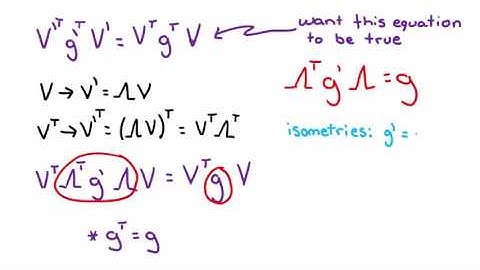 V'ᵀg'ᵀV' = VᵀgᵀV
want this equation
to be true
V → V' = ΛV
Vᵀ → V'ᵀ = (ΛV)ᵀ = VᵀΛᵀ
VᵀΛᵀg'ΛV = VᵀgV
* gᵀ = g
Λᵀg'Λ = g
isometries: g' =